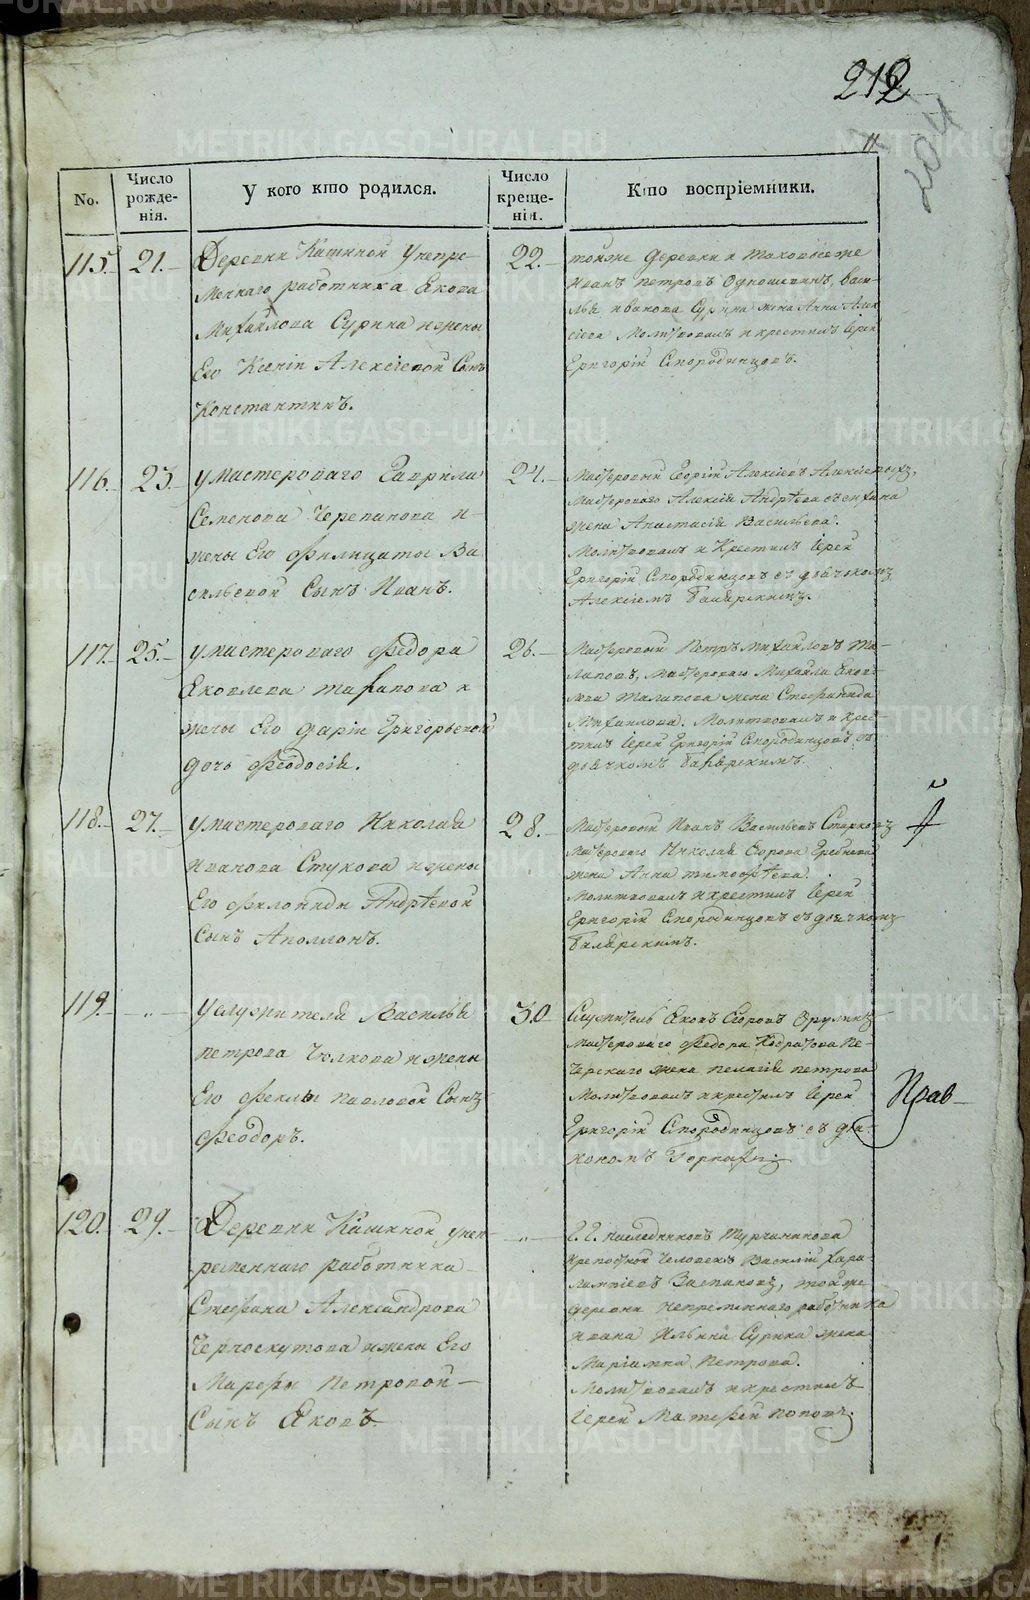 212
204
11
No.
Число рожде-нія.
У кого кто родился.
Число креще-нія.
Кто воспріемники.
115.
21.
Деревни Кашиной Унепре-
меннаго работника Якова
Михайлова Сурина и жены
Его Ксеніи Алексіевой Сынъ
Константинъ.
22.
тойже деревни и таковойже
Иванъ Петровъ, Васи-
лья Иванова Сурина жена Анна Алек
сіева Молитвовалъ и крестилъ Іерей
Григорій Смородинцовъ.
116.
23.
у мастероваго Гаврила
Семенова Черепанова и
жены Его Филицаты Ва
сильевой Сынъ Иванъ.
24.
Мастеровый Георгій Алексіевъ
Мастероваго Алексія Андрѣева
жена Анастасія Васильева.
Молитвовалъ и Крестилъ Іерей
Григорій Смородинцовъ съ дьячкомъ
Алексіемъ
117.
25.
у мастероваго Федора
Яковлева и
жены Его Даріи Григорьевой
дочь Феодосія.
26.
Мастеровый Петръ Михайловъ Та-
лаповъ, мастероваго Михайла Яков-
лева Талапова жена Стефанида
Михайлова. Молитвовалъ и крес-
тилъ Іерей Григорій Смородинцовъ съ
дьячкомъ
118.
27.
у мастероваго Николая
Иванова Стукова и жены
Его Филониды Андрѣевой
Сынъ Аполлонъ.
28.
Мастеровый Иванъ Васильевъ Старковъ
Мастероваго Николая Егорова
жена Анна Тимофѣева.
Молитвовалъ и крестилъ Іерей
Григорій Смородинцовъ съ дьячкомъ
119.
У служителя Василья
Петрова Чулкова и жены
Его Феклы Павловой Сынъ
Феодоръ.
30
Служитель Яковъ Егоровъ
мастероваго Федора Пе-
черскаго жена Пелагія Петрова
Молитвовалъ и крестилъ Іерей
Григорій Смородинцовъ съ діа-
кономъ
Прав
120.
29.
Деревни Кашиной, унеп-
ременнаго работника
Стефана Александрова
Черноскутова и жены Его
Марфы Петровой
Сынъ Яковъ
Г. Г. наследниковъ Турчанинова
крепостной человекъ Василій Хара-
лампіевъ, той же
деревни непременнаго работника
Ивана Ильина Сурина жена
Маріамна Петрова.
Молитвовалъ и крестилъ
Іерей Матфей Поповъ.
METRIKI.GASO-URAL.RU